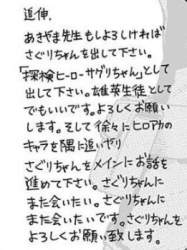 追伸.
あきやま先生もしよろしければ
さぐりちゃんを出して下さい。
「探検ヒーローサグリちゃん」として
出して下さい。雄英生徒として
でもいいです。よろしくお願い
します。そして徐々にヒロアカの
キャラを隅に追いやり
さぐりちゃんをメインにお話を
進めて下さい。さぐりちゃんに
また会いたい。さぐりちゃんに
また会いたいです。さぐりちゃんを
よろしくお願い致します。